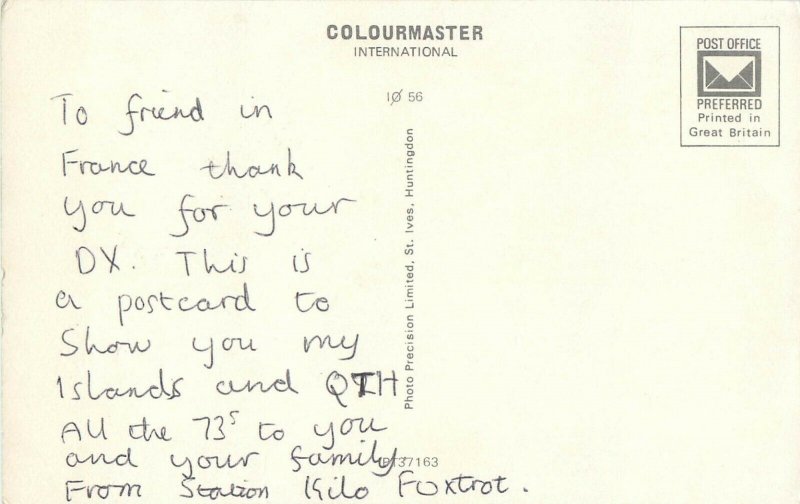 COLOURMASTER
INTERNATIONAL
POST OFFICE
PREFERRED
Printed in
Great Britain
1Ø 56
To friend in
France thank
you for your
DX. This is
a postcard to
Show you my
Islands and QTH
All the 73s to you
and your family
From Station Kilo Foxtrot.
Photo Precision Limited, St. Ives, Huntingdon
PT37163